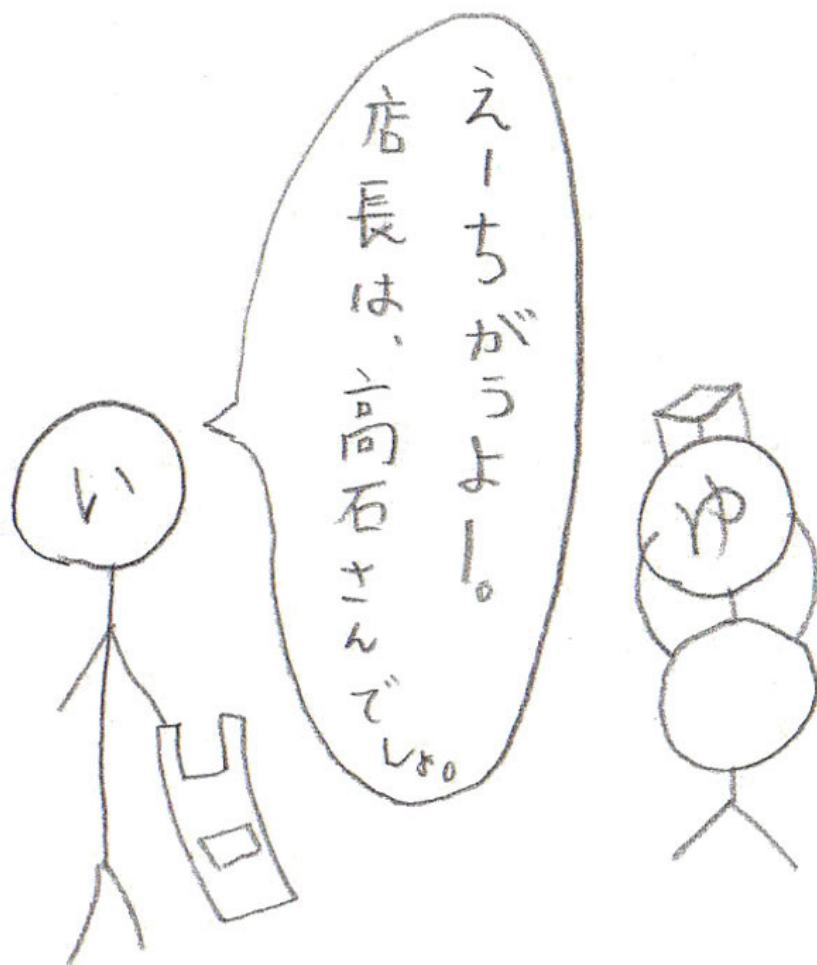 えーちがうよー。
店長は、高石さんでしょ。
ゆ
い